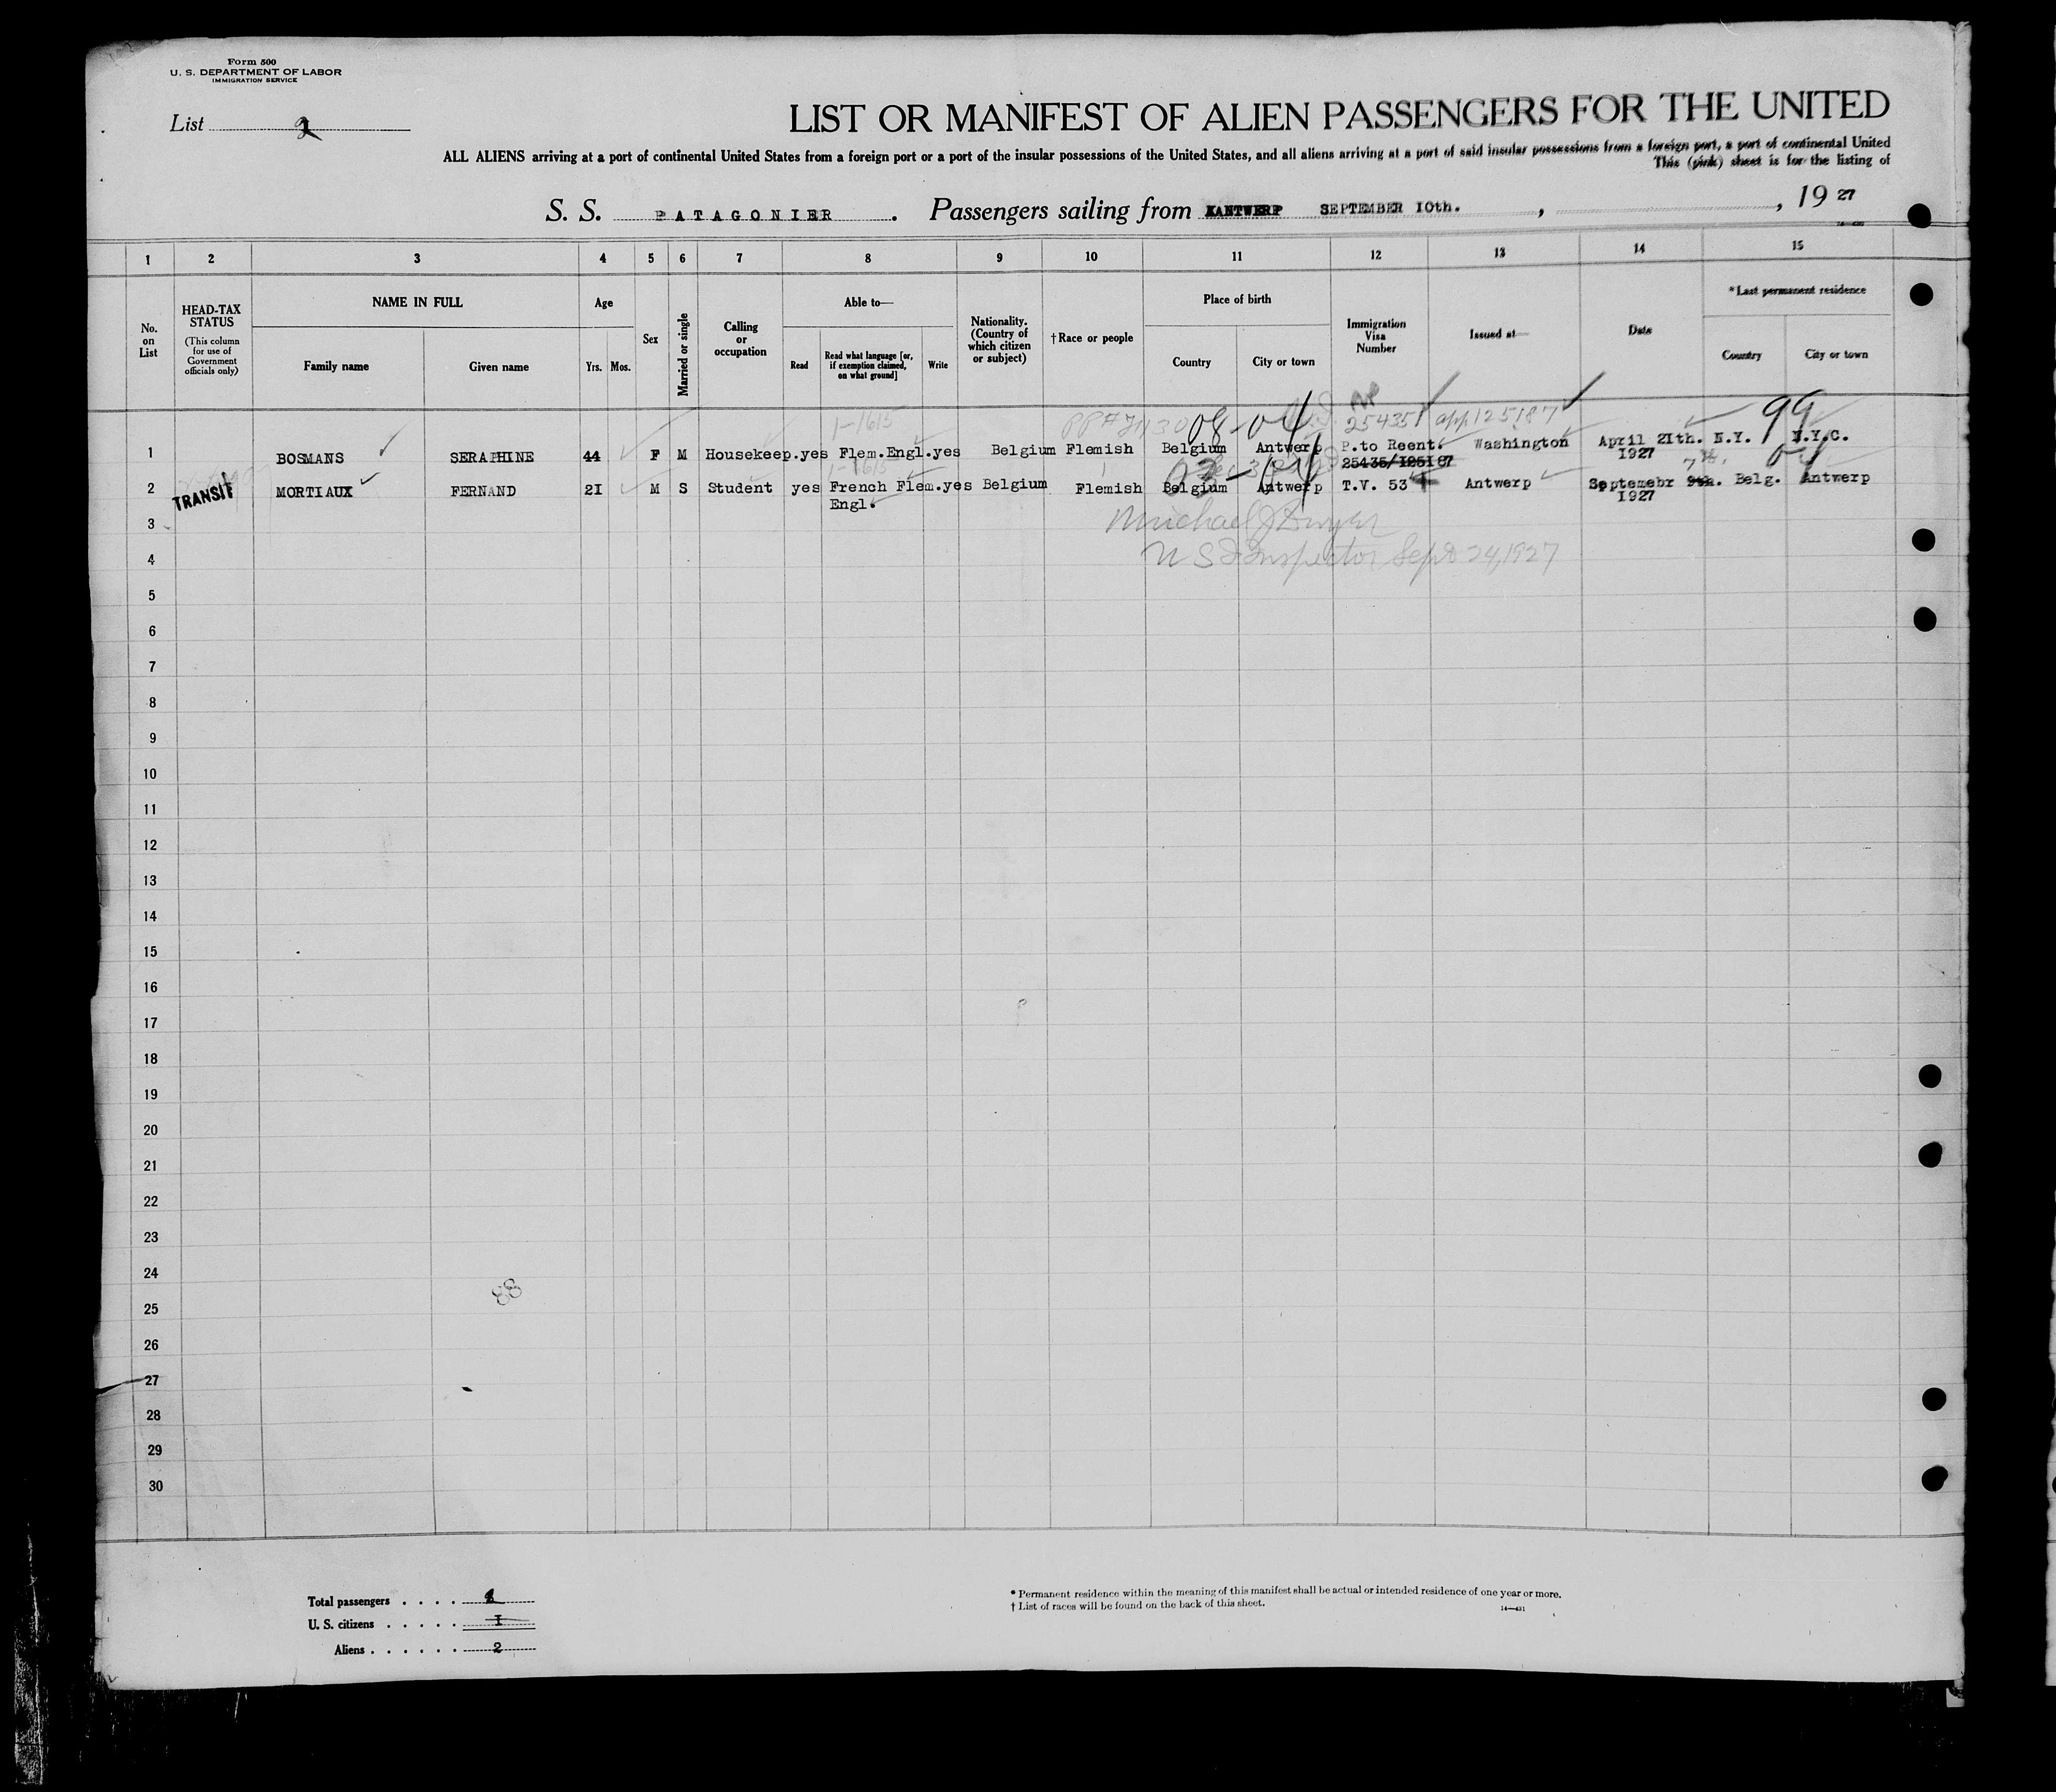 Form 500
U. S. DEPARTMENT OF LABOR
IMMIGRATION SERVICE
List 2
LIST OR MANIFEST OF ALIEN PASSENGERS FOR THE UNITED
ALL ALIENS arriving at a port of continental United States from a foreign port or a port of the insular possessions of the United States, and all aliens arriving at a port of said insular possessions from a foreign port, a port of continental United
This (pink) sheet is for the listing of
S. S. PATAGONIER . Passengers sailing from ANTWERP SEPTEMBER IOth. , , 19 27
1 2 3 4 5 6 7 8 9 10 11 12 13 14 15
No. on List
HEAD-TAX STATUS
(This column for use of Government officials only)
NAME IN FULL
Family name
Given name
Age
Yrs.
Mos.
Sex
Married or single
Calling or occupation
Able to—
Read
Read what language [or, if exemption claimed, on what ground]
Write
Nationality. (Country of which citizen or subject)
†Race or people
Place of birth
Country
City or town
Immigration Visa Number
Issued at—
Date
*Last permanent residence
Country
City or town
1-1615 08-04 254351 app 125187 99
1 BOSMANS SERAPHINE 44 F M Housekeep. yes Flem.Engl. yes Belgium Flemish Belgium Antwerp P.to Reent. Washington April 2Ith. N.Y. N.Y.C.
25435/I25I87 I927
1-1615 7th. 04
2 TRANSIT MORTIAUX FERNAND 2I M S Student yes French Flem. yes Belgium Flemish Belgium Antwerp T.V. 534 Antwerp Septemebr Belg. Antwerp
Engl. I927
Michael J Dwyer
3
U S I Inspector Sept 24, 1927
4
5
6
7
8
9
10
11
12
13
14
15
16
17
18
19
20
21
22
23
24
88
25
26
27
28
29
30
Total passengers . . . .
U. S. citizens . . . . . I
Aliens . . . . . . 2
* Permanent residence within the meaning of this manifest shall be actual or intended residence of one year or more.
† List of races will be found on the back of this sheet.
14—431